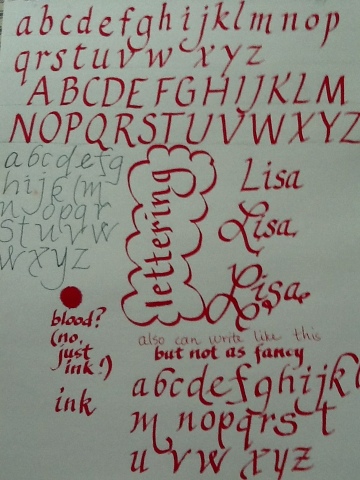 abcdefghijklmnop
qrstuvwxyz
ABCDEFGHIJKLM
NOPQRSTUVWXYZ
abcdefg
hijklm
nopqr
stuvw
wxyz
lettering
Lisa
Lisa.
Lisa.
blood?
(no,
just
ink!)
ink
also can write like this
but not as fancy
abcdefghijk
m nopqrs t
u vw xyz